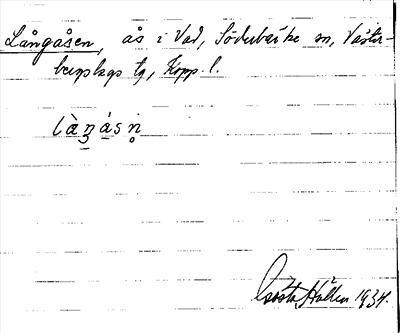 Långåsen, ås i Vad, Söderbärke sn, Väster-
bergslags tg, Kopp. l.
làŋásn̥
Gösta Hallen 1934.